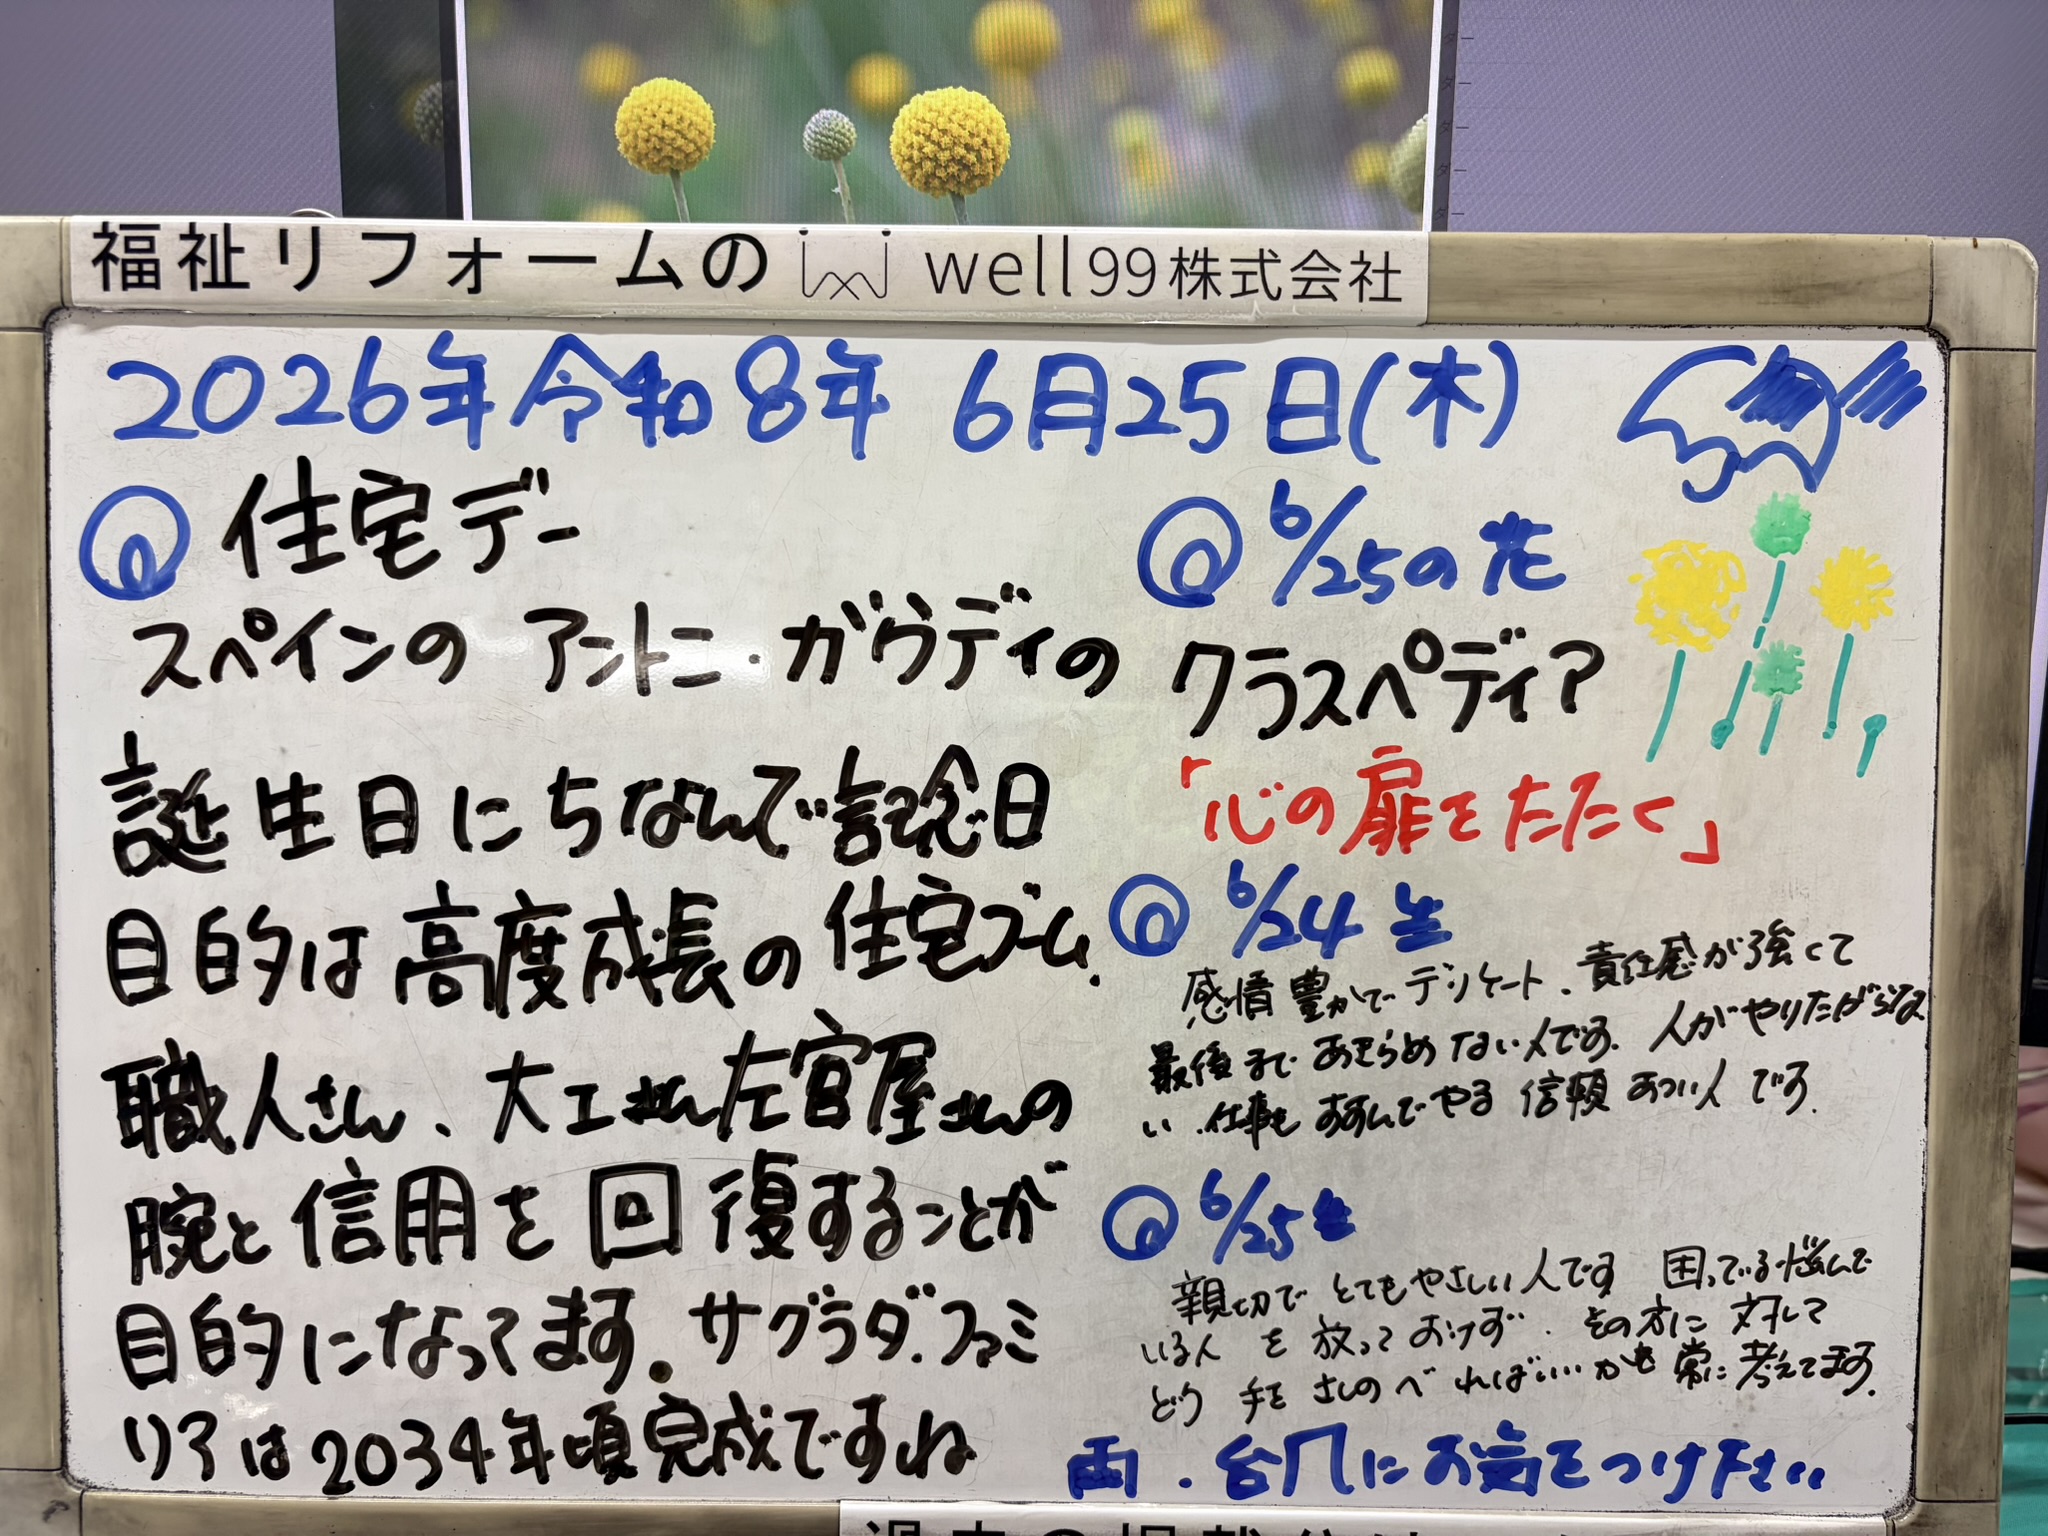 福祉リフォームの well99株式会社
2026年令和8年 6月25日(木)
住宅デー
スペインの アントニ・ガウディの
誕生日にちなんで記念日
目的は高度成長の住宅ブーム、
職人さん、大工さん左官屋さんの
腕と信用を回復することが
目的になってます。サグラダ・ファミ
リアは2034年頃完成ですね
6/25の花
クラスペディア
「心の扉をたたく」
6/24生
感情豊かでデリケート、責任感が強くて
最後まであきらめない人です。人がやりたがらな
い、仕事もすすんでやる信頼あつい人です。
6/25生
親切でとてもやさしい人です 困っている悩んで
いる人を放っておけず、その方に対して
どう手をさしのべればいいかを常に考えてます。
雨、台風にお気をつけ下さい